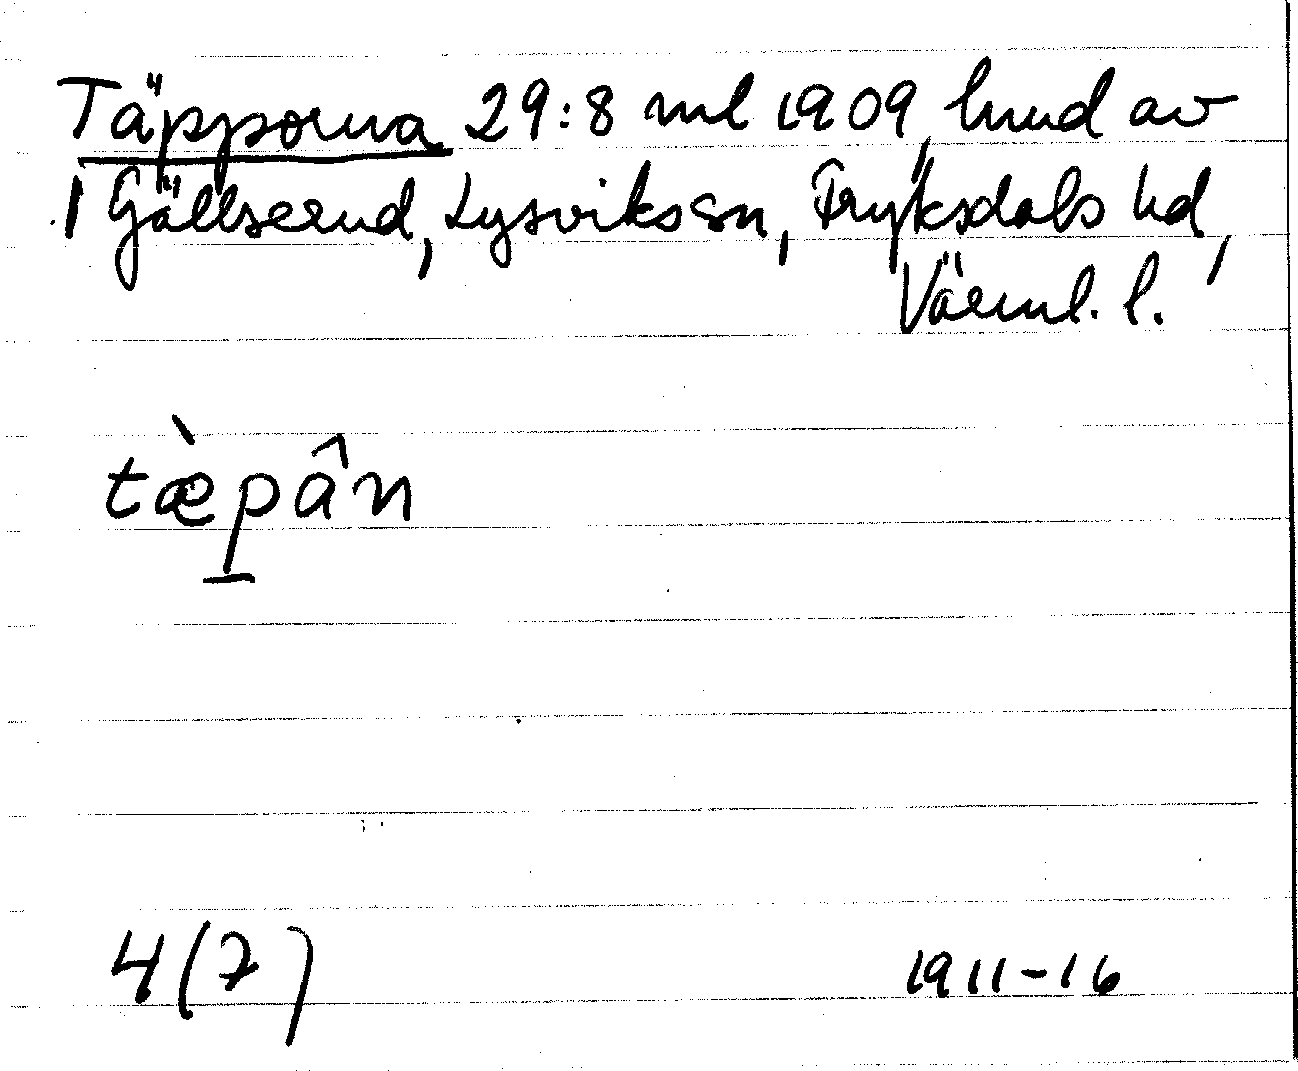 Täpporna 29:8 ml 1909, hmd av
1 Gällserud, Lysviks sn, Fryksdals hd,
Värml. l.
tæ̀pân
4(7)
1911-16